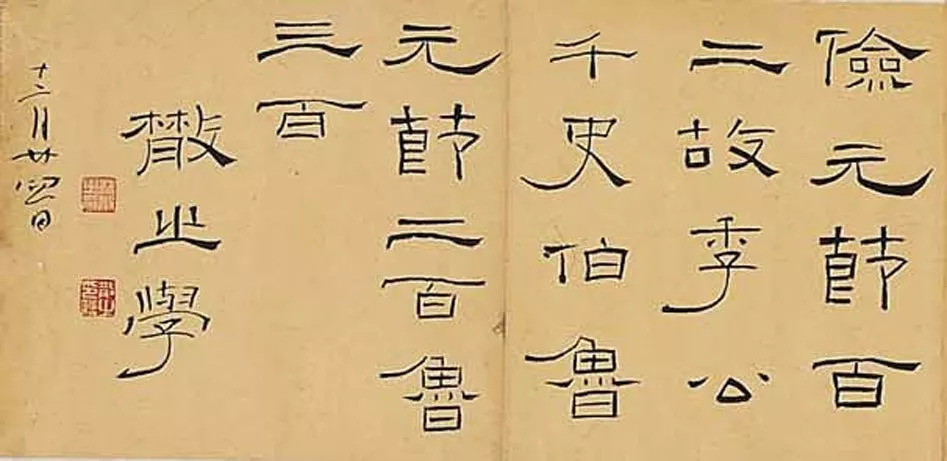 儉元節百
二故季公
千史伯魯
元節二百魯
三百
散之學
十二月廿四日